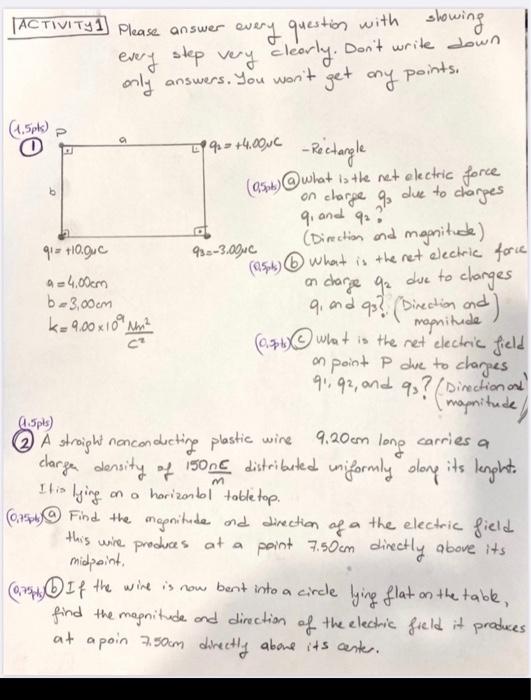 ACTIVITY 1 Please answer every question with showing
every step very clearly. Don't write down
only answers. You won't get any points.
(1.5pts) P
① a q2 = +4.00μC - Rectangle
b
(0,5pts) ⓐ What is the net electric force
on charge q3 due to charges
q1 and q2?
(Direction and magnitude)
q1 = +10.0μC q3 = -3.00μC
(0,5pts) ⓑ What is the net electric force
on charge q2 due to charges
q1 and q3? (Direction and magnitude)
a = 4.00cm
b = 3,00cm
k = 9.00 x 10⁹ Nm²/C²
(0,5pts) ⓒ What is the net electric field
on point P due to charges
q1, q2, and q3? (Direction and magnitude)
(1.5pts)
② A straight nonconducting plastic wire 9.20cm long carries a
charge density of 150 nC/m distributed uniformly along its lenght.
It is lying on a horizontal tabletop.
(0,75pts) ⓐ Find the magnitude and direction of a the electric field
this wire produces at a point 7.50cm directly above its
midpoint.
(0,75pts) ⓑ If the wire is now bent into a circle lying flat on the table,
find the magnitude and direction of the electric field it produces
at a poin 7.50cm directly above its center.